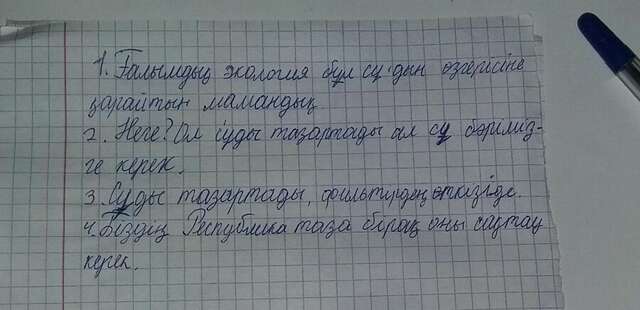 1. Ғалымдың экология бұл су'дын өзгерісіне
қарайтын мамандық.
2. Неге? Ол суды тазартады ал су бәріміз-
ге керек.
3. Суды тазартады, фильтрден өткізіде.
4. Біздің Республика таза бірақ оны сақтау
керек.